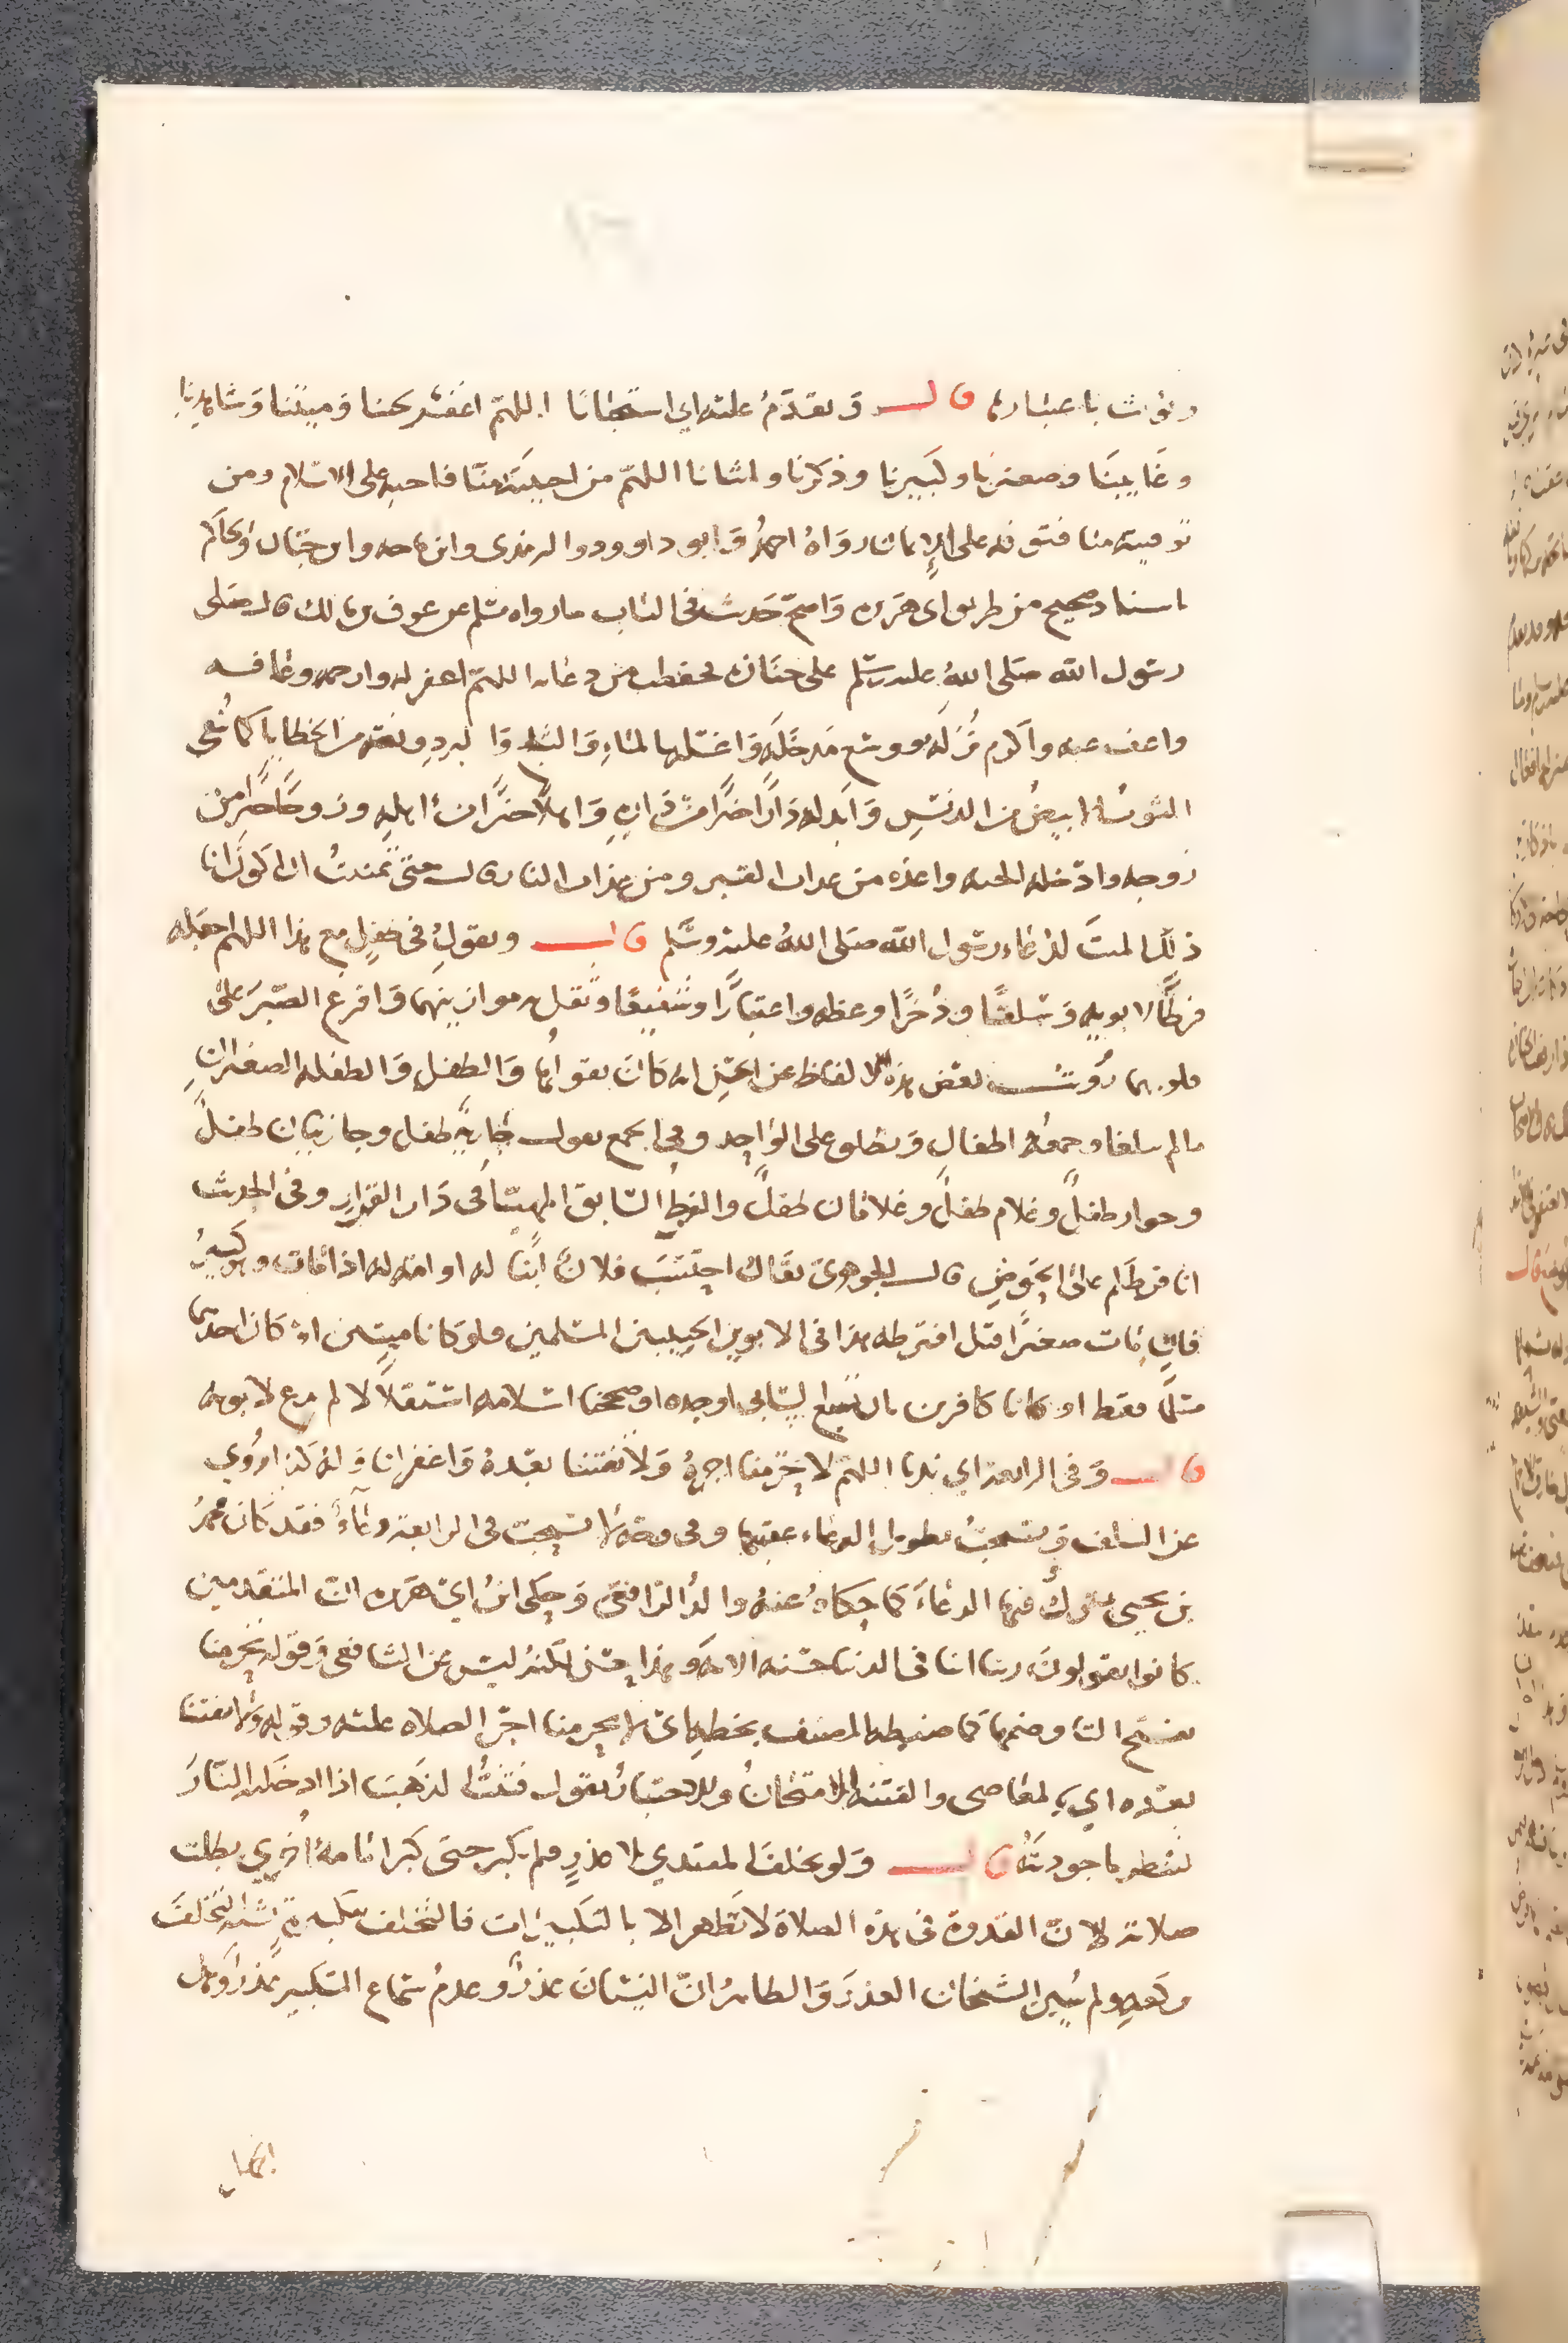 ويؤنث باعتبارها قال ويقدم عليه اي استحبابا اللهم اغفر لحينا وميتنا وشاهدنا
وغايبنا وصغيرنا وكبيرنا وذكرنا وانثانا اللهم من احييته منا فاحيه على الاسلام ومن
توفيته منا فتوفه على الايمان رواه احمد وابو داوود والترمذي وابن ماجه وابن حبان والحاكم
باسناد صحيح من طريق ابي هريره واصح حديث في الباب ما رواه مسلم عن عوف بن مالك قال صلى
رسول الله صلى الله عليه وسلم على جنازة فحفظت من دعائه اللهم اغفر له وارحمه وعافه
واعف عنه واكرم نزله ووسع مدخله واغسله بالماء والثلج والبرد ونقه من الخطايا كما ينقى
الثوب الابيض من الدنس وابدله دارا خيرا من داره واهلا خيرا من اهله وزوجا خيرا من
زوجه وادخله الجنه واعذه من عذاب القبر ومن عذاب النار قال حتى تمنيت ان اكون انا
ذلك الميت لدعاء رسول الله صلى الله عليه وسلم قال ويقول في طفل مع هذا اللهم اجعله
فرطا لابويه وسلفا وذخرا وعظه واعتبارا وشفيعا وثقل به موازينهما وافرغ الصبر على
قلوبهما رويت بعض هذه الالفاظ عن الحسن انه كان يقولها والطفل والطفله الصغيران
مالم يبلغا وجمعه اطفال ويطلق على الواحد وفي الجمع يقول جارية طفل وجاريتان طفل
وجوار طفل وغلام طفل وغلامان طفل والفرط السابق المهيئا في دار القرار وفي الحديث
انا فرطكم على الحوض قال الجوهري يقال احتسب فلان ابنا له او ابنه له اذا مات وهو كبير
فان مات صغيرا قيل افترطه هذا في الابوين الحيين المسلمين فلو كانا ميتين او كان احدهما
مثلا فقط او كانا كافرين بان تبع السابي او جده او صححنا اسلامه استقلالا لم يدع لابويه
قال وفي الرابعة اي ندبا اللهم لا تحرمنا اجره ولا تفتنا بعده واغفر لنا وله كذا روي
عن السلف ويستحب تطويل الدعاء عقبها وفي وجه لا يستحب في الرابعة دعاء فقد كان محمد
بن يحيى يترك فيها الدعاء كما حكاه عنه والد الرافعي وحكى ابن ابي هريره ان المتقدمين
كانوا يقولون ربنا اتنا في الدنيا حسنه الايه وهذا حسن لكنه ليس عن الشافعي وقوله تحرمنا
بفتح التا وضمها كما ضبطه المصنف بخطه اي لا تحرمنا اجر الصلاه عليه وقوله ولا تفتنا
بعده اي بالمعاصي والفتنه الامتحان والاختبار يقول فتنت الذهب اذا ادخلته النار
لتنظر ما جودته قال ولو تخلف المقتدي بلا عذر فلم يكبر حتى كبر امامه اخري بطلت
صلاته لان القدوة في هذه الصلاة لا تظهر الا بالتكبيرات فالتخلف بتكبيرة يشبه التخلف
بركعه ولم يبين الشيخان العذر والظاهر ان النسيان عذر وعدم سماع التكبير عذر وهل